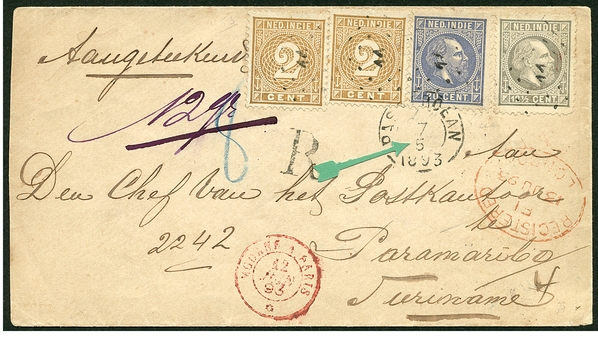 NED. INDIE
2
CENT
NED. INDIE
2
CENT
NED. INDIE
20 CENT
NED. INDIE
12½ CENT
Aangeteekend
N 2
8
R
PASOEROEAN
7
5
1893
Aan
Den Chef van het Postkantoor
te
2242
Paramaribo
Suriname
MODANE A PARIS
12
93
REGISTERED